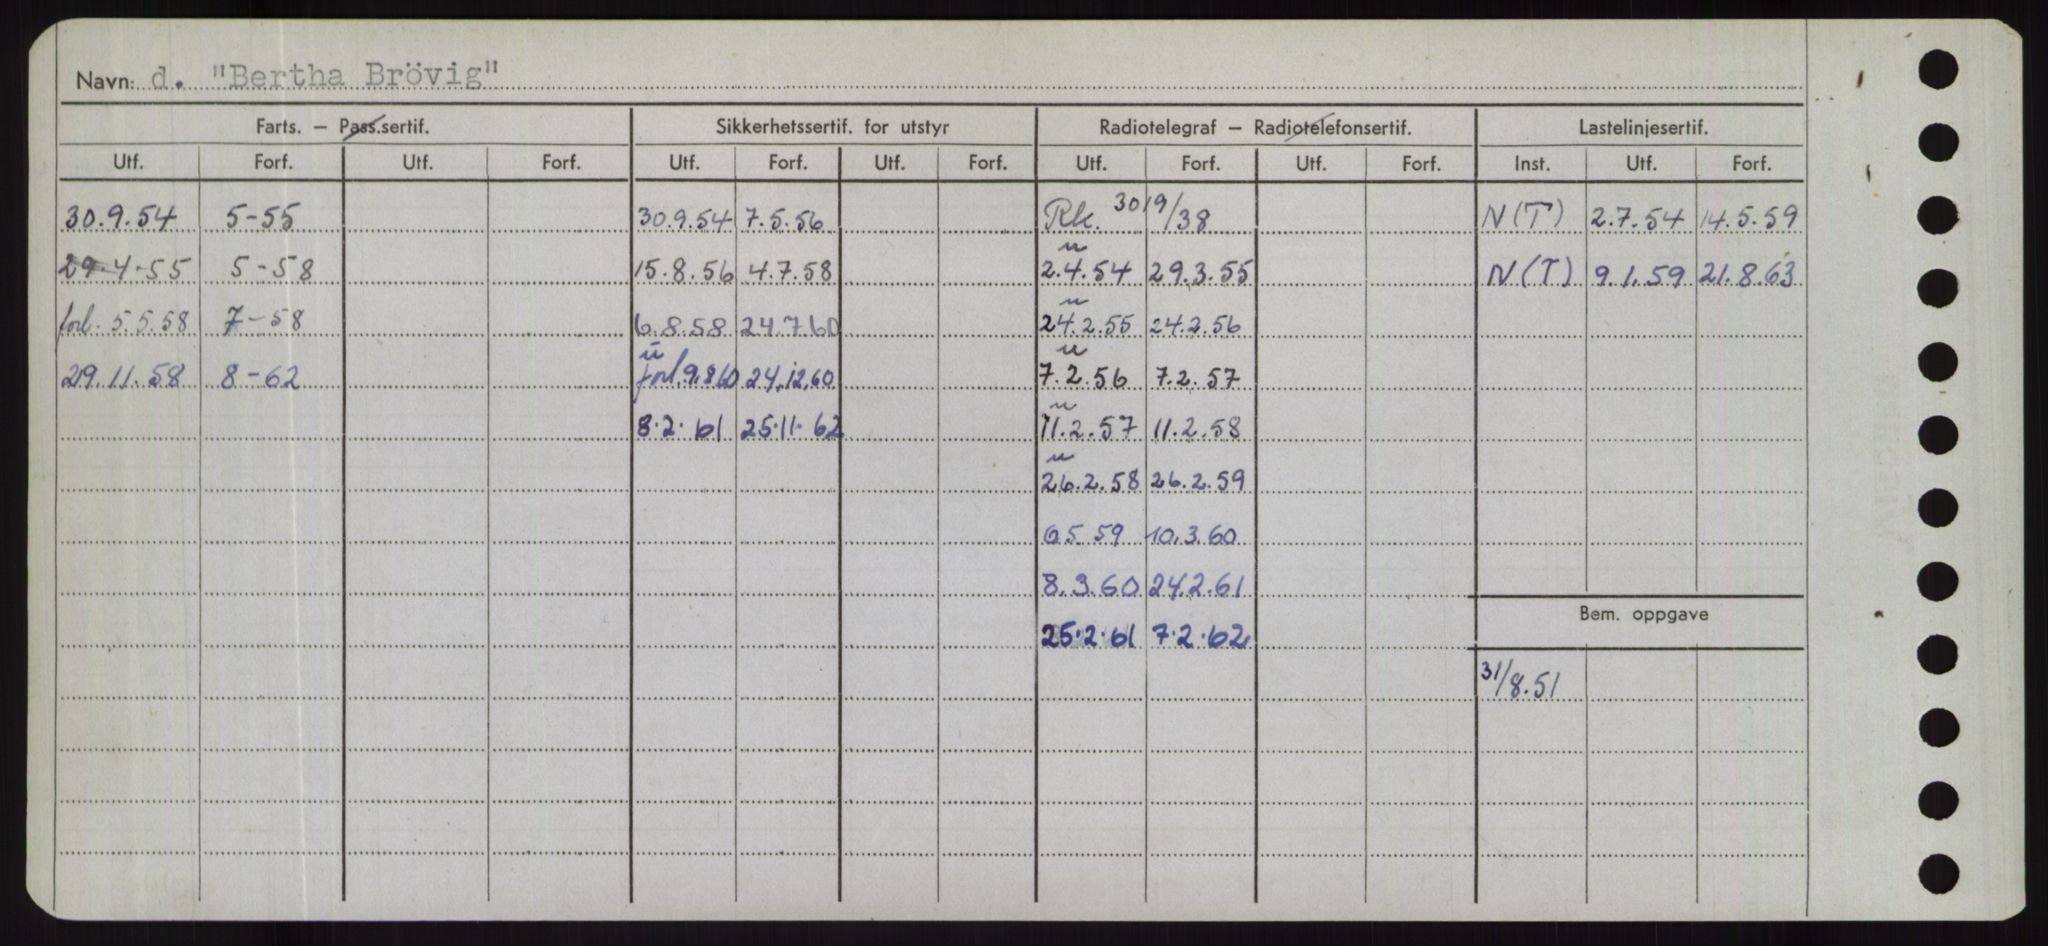 Navn: d. "Bertha Brövig"
Farts. — Pass.sertif. Sikkerhetssertif. for utstyr Radiotelegraf — Radiotelefonsertif. Lastelinjesertif.
Utf. Forf. Utf. Forf. Utf. Forf. Utf. Forf. Utf. Forf. Utf. Forf. Inst. Utf. Forf.
30.9.54 5-55 30.9.54 7.5.56 Rk. 30/9/38 N(T) 2.7.54 14.5.59
29.4.55 5-58 15.8.56 4.7.58 2.4.54 29.3.55 N(T) 9.1.59 21.8.63
forl. 5.5.58 7-58 6.8.58 24.7.60 24.2.55 24.2.56
29.11.58 8-62 forl. 9.8.60 24.12.60 7.2.56 7.2.57
8.2.61 25.11.62 11.2.57 11.2.58
26.2.58 26.2.59
6.5.59 10.3.60
8.3.60 24.2.61
Bem. oppgave
25.2.61 7.2.62
31/8.51